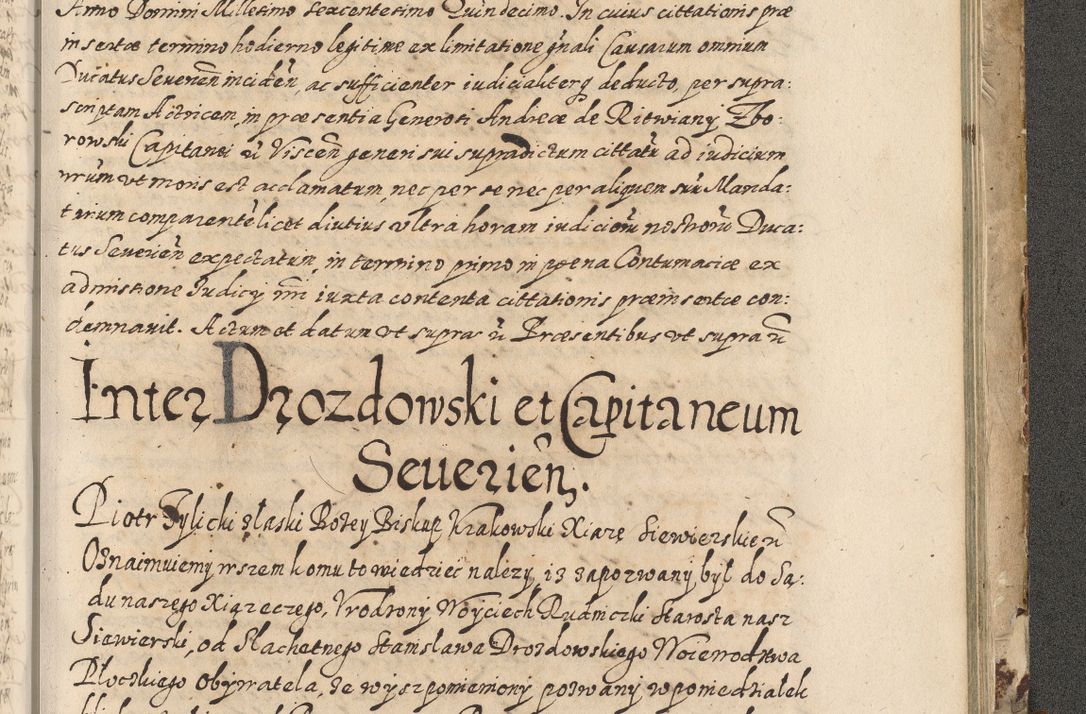 Anno Domini Millesimo sexcentesimo Quindecimo. In cuius cittationis præ
insertæ termino hodierno legitime ex limitatione gnali Causarum omnium
Ducatus Severien inciden, ac sufficienter iudicialiterq deducto, per supra:
scriptam Actricem, in præsentia Generosi Andreæ de Ritwiany Zbo:
rowski Capitanei generi sui supradictum cittatu ad iudicium
nrum ut moris est acclamatum, nec per se nec per aliquem suu Manda:
tarium comparente licet diutius ultra horam iudicioru nostroru Duca:
tus Severien expectatum, in termino primo in poena Contumaciæ ex
admissione Iudicy nri iuxta contenta cittationis præinsertæ con:
demnavit. Actum et datum ut supra Præsentibus ut supra
Inter Drozdowski et Capitaneum
Seuerien.
Piotr Tylicki z łaski Bozey Biskup Krakowski Xiąze Siewierskie
Oznaimuiemy wszem komu to wiedziec nalezy, iz zapozwany był do Są:
du naszego Xiązeczego, Vrodzony Woyciech Rudniczki Starosta nasz
Siewierski, od Slachetnego Stanisława Drozdowskiego Woiewodztwa
Płockiego Obywatela, ze wyszpomieniony pozwany w poniedziałek